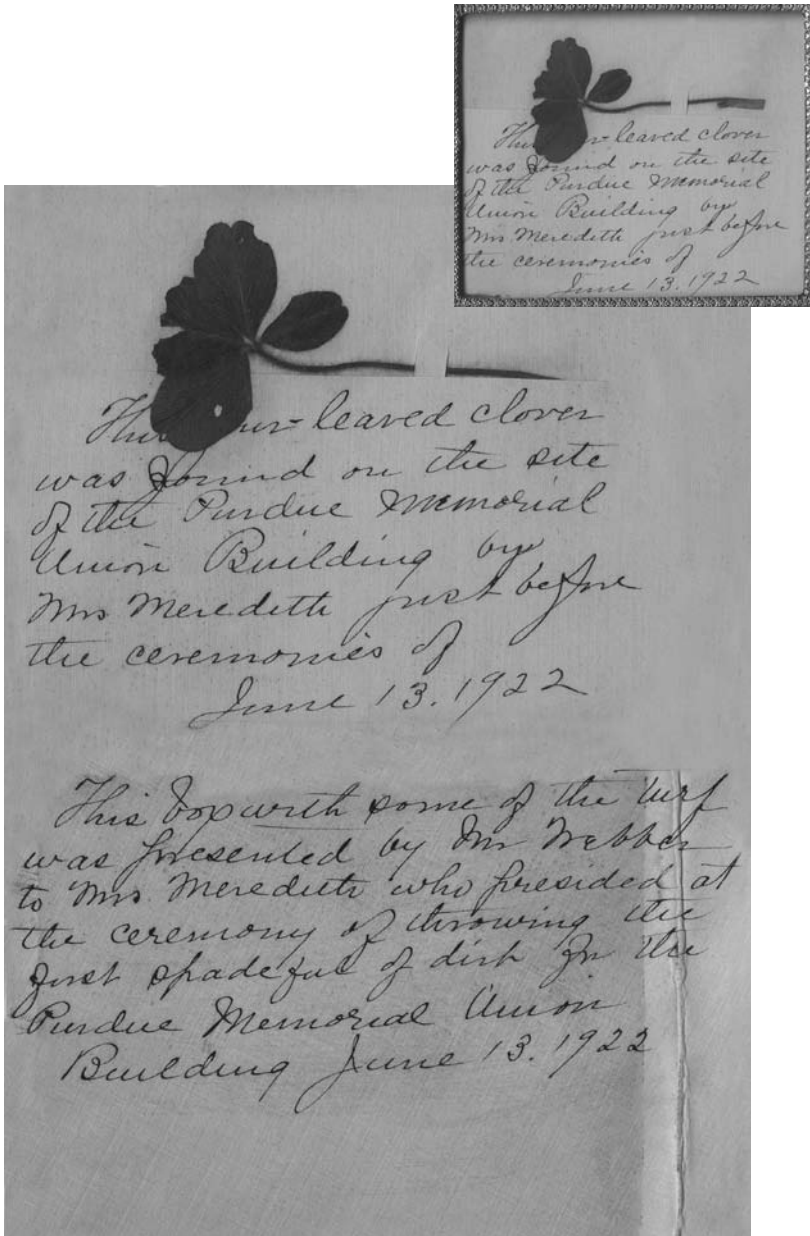 This four-leaved clover
was found on the site
of the Purdue Memorial
Union Building by
Mrs Meredith just before
the ceremonies of
June 13. 1922
This four-leaved clover
was found on the site
of the Purdue Memorial
Union Building by
Mrs Meredith just before
the ceremonies of
June 13. 1922
This box with some of the turf
was presented by Mr Webber
to Mrs. Meredith who presided at
the ceremony of throwing the
first spadeful of dirt for the
Purdue Memorial Union
Building June 13. 1922